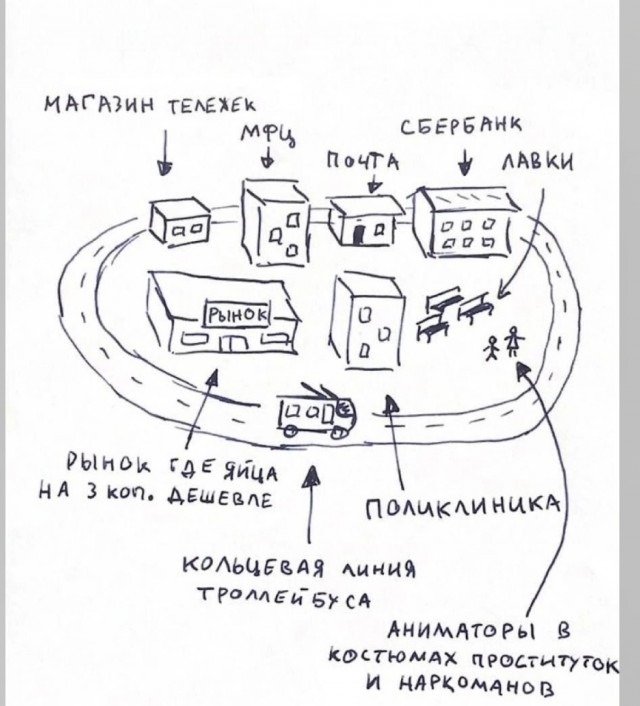 МАГАЗИН ТЕЛЕЖЕК
МФЦ
ПОЧТА
СБЕРБАНК
ЛАВКИ
РЫНОК
РЫНОК ГДЕ ЯЙЦА
НА 3 КОП. ДЕШЕВЛЕ
ПОЛИКЛИНИКА
КОЛЬЦЕВАЯ ЛИНИЯ
ТРОЛЛЕЙБУСА
АНИМАТОРЫ В
КОСТЮМАХ ПРОСТИТУТОК
И НАРКОМАНОВ